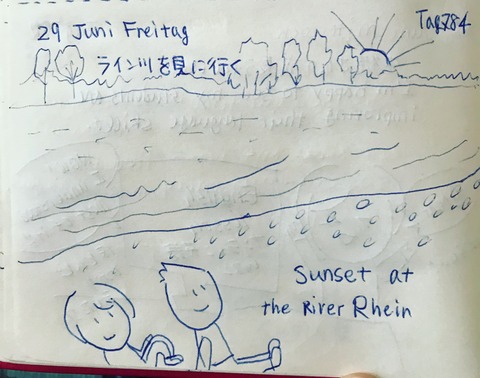 29 Juni Freitag
Tag784
ライン川を見に行く
Sunset at
the River Rhein